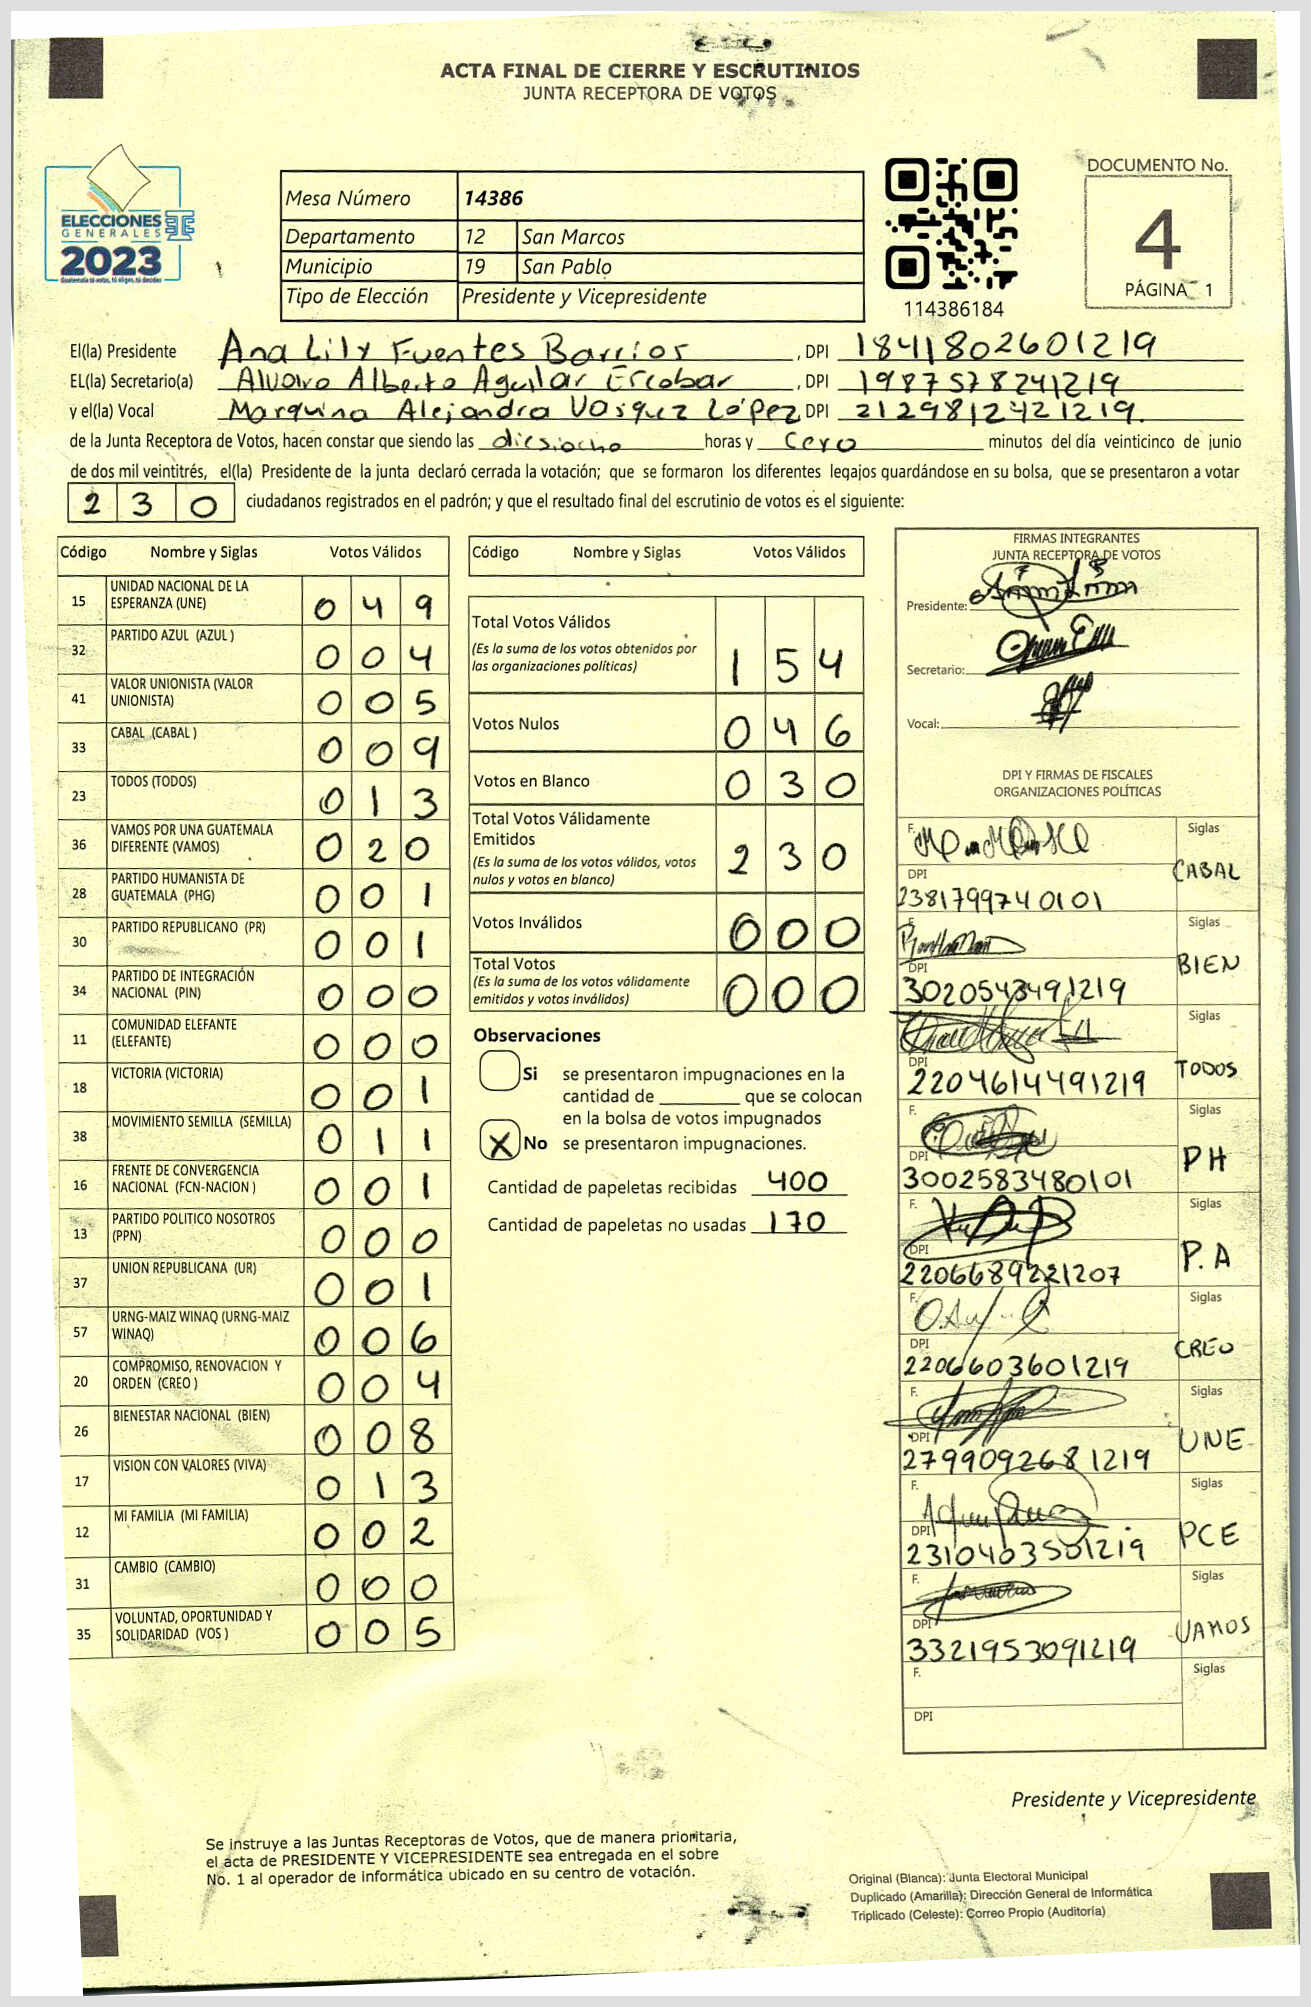 ACTA FINAL DE CIERRE Y ESCRUTINIOS
JUNTA RECEPTORA DE VOTOS
ELECCIONES
GENERALES
2023
Guatemala tú votas, tú eliges, tú decides
Mesa Número 14386
Departamento 12 San Marcos
Municipio 19 San Pablo
Tipo de Elección Presidente y Vicepresidente
114386184
DOCUMENTO No.
4
PÁGINA 1
El(la) Presidente Ana Lily Fuentes Barrios, DPI 1841802601219
EL(la) Secretario(a) Alvaro Alberto Aguilar Escobar, DPI 1987578241219
y el(la) Vocal Marquina Alejandra Vasquez López, DPI 2129812421219.
de la Junta Receptora de Votos, hacen constar que siendo las diesiocho horas y cero minutos del día veinticinco de junio
de dos mil veintitrés, el(la) Presidente de la junta declaró cerrada la votación; que se formaron los diferentes legajos guardándose en su bolsa, que se presentaron a votar
230 ciudadanos registrados en el padrón; y que el resultado final del escrutinio de votos es el siguiente:
Código Nombre y Siglas Votos Válidos
15 UNIDAD NACIONAL DE LA
ESPERANZA (UNE) 049
32 PARTIDO AZUL (AZUL ) 004
41 VALOR UNIONISTA (VALOR
UNIONISTA) 005
33 CABAL (CABAL ) 009
23 TODOS (TODOS) 013
36 VAMOS POR UNA GUATEMALA
DIFERENTE (VAMOS) 020
28 PARTIDO HUMANISTA DE
GUATEMALA (PHG) 001
30 PARTIDO REPUBLICANO (PR) 001
34 PARTIDO DE INTEGRACIÓN
NACIONAL (PIN) 000
11 COMUNIDAD ELEFANTE
(ELEFANTE) 000
18 VICTORIA (VICTORIA) 001
38 MOVIMIENTO SEMILLA (SEMILLA) 011
16 FRENTE DE CONVERGENCIA
NACIONAL (FCN-NACION ) 001
13 PARTIDO POLITICO NOSOTROS
(PPN) 000
37 UNION REPUBLICANA (UR) 001
57 URNG-MAIZ WINAQ (URNG-MAIZ
WINAQ) 006
20 COMPROMISO, RENOVACION Y
ORDEN (CREO ) 004
26 BIENESTAR NACIONAL (BIEN) 008
17 VISION CON VALORES (VIVA) 013
12 MI FAMILIA (MI FAMILIA) 002
31 CAMBIO (CAMBIO) 000
35 VOLUNTAD, OPORTUNIDAD Y
SOLIDARIDAD (VOS ) 005
Código Nombre y Siglas Votos Válidos
Total Votos Válidos
(Es la suma de los votos obtenidos por
las organizaciones políticas) 154
Votos Nulos 046
Votos en Blanco 030
Total Votos Válidamente
Emitidos
(Es la suma de los votos válidos, votos
nulos y votos en blanco) 230
Votos Inválidos 000
Total Votos
(Es la suma de los votos válidamente
emitidos y votos inválidos) 000
Observaciones
Si se presentaron impugnaciones en la
cantidad de ________ que se colocan
en la bolsa de votos impugnados
X No se presentaron impugnaciones.
Cantidad de papeletas recibidas 400
Cantidad de papeletas no usadas 170
FIRMAS INTEGRANTES
JUNTA RECEPTORA DE VOTOS
Presidente:
Secretario:
Vocal:
DPI Y FIRMAS DE FISCALES
ORGANIZACIONES POLÍTICAS
F. Siglas
CABAL
DPI
2381799740101
F. Siglas
BIEN
DPI
3020543491219
Siglas
TODOS
DPI
2204614491219
F. Siglas
PH
DPI
3002583480101
F. Siglas
P.A
DPI
2206689221207
F. Siglas
CREO
DPI
2206603601219
F. Siglas
UNE
DPI
2799092681219
F. Siglas
PCE
DPI
2310463501219
F. Siglas
VAMOS
DPI
3321953091219
F. Siglas
DPI
Presidente y Vicepresidente
Se instruye a las Juntas Receptoras de Votos, que de manera prioritaria,
el acta de PRESIDENTE Y VICEPRESIDENTE sea entregada en el sobre
No. 1 al operador de informática ubicado en su centro de votación.
Original (Blanca): Junta Electoral Municipal
Duplicado (Amarilla): Dirección General de Informática
Triplicado (Celeste): Correo Propio (Auditoría)